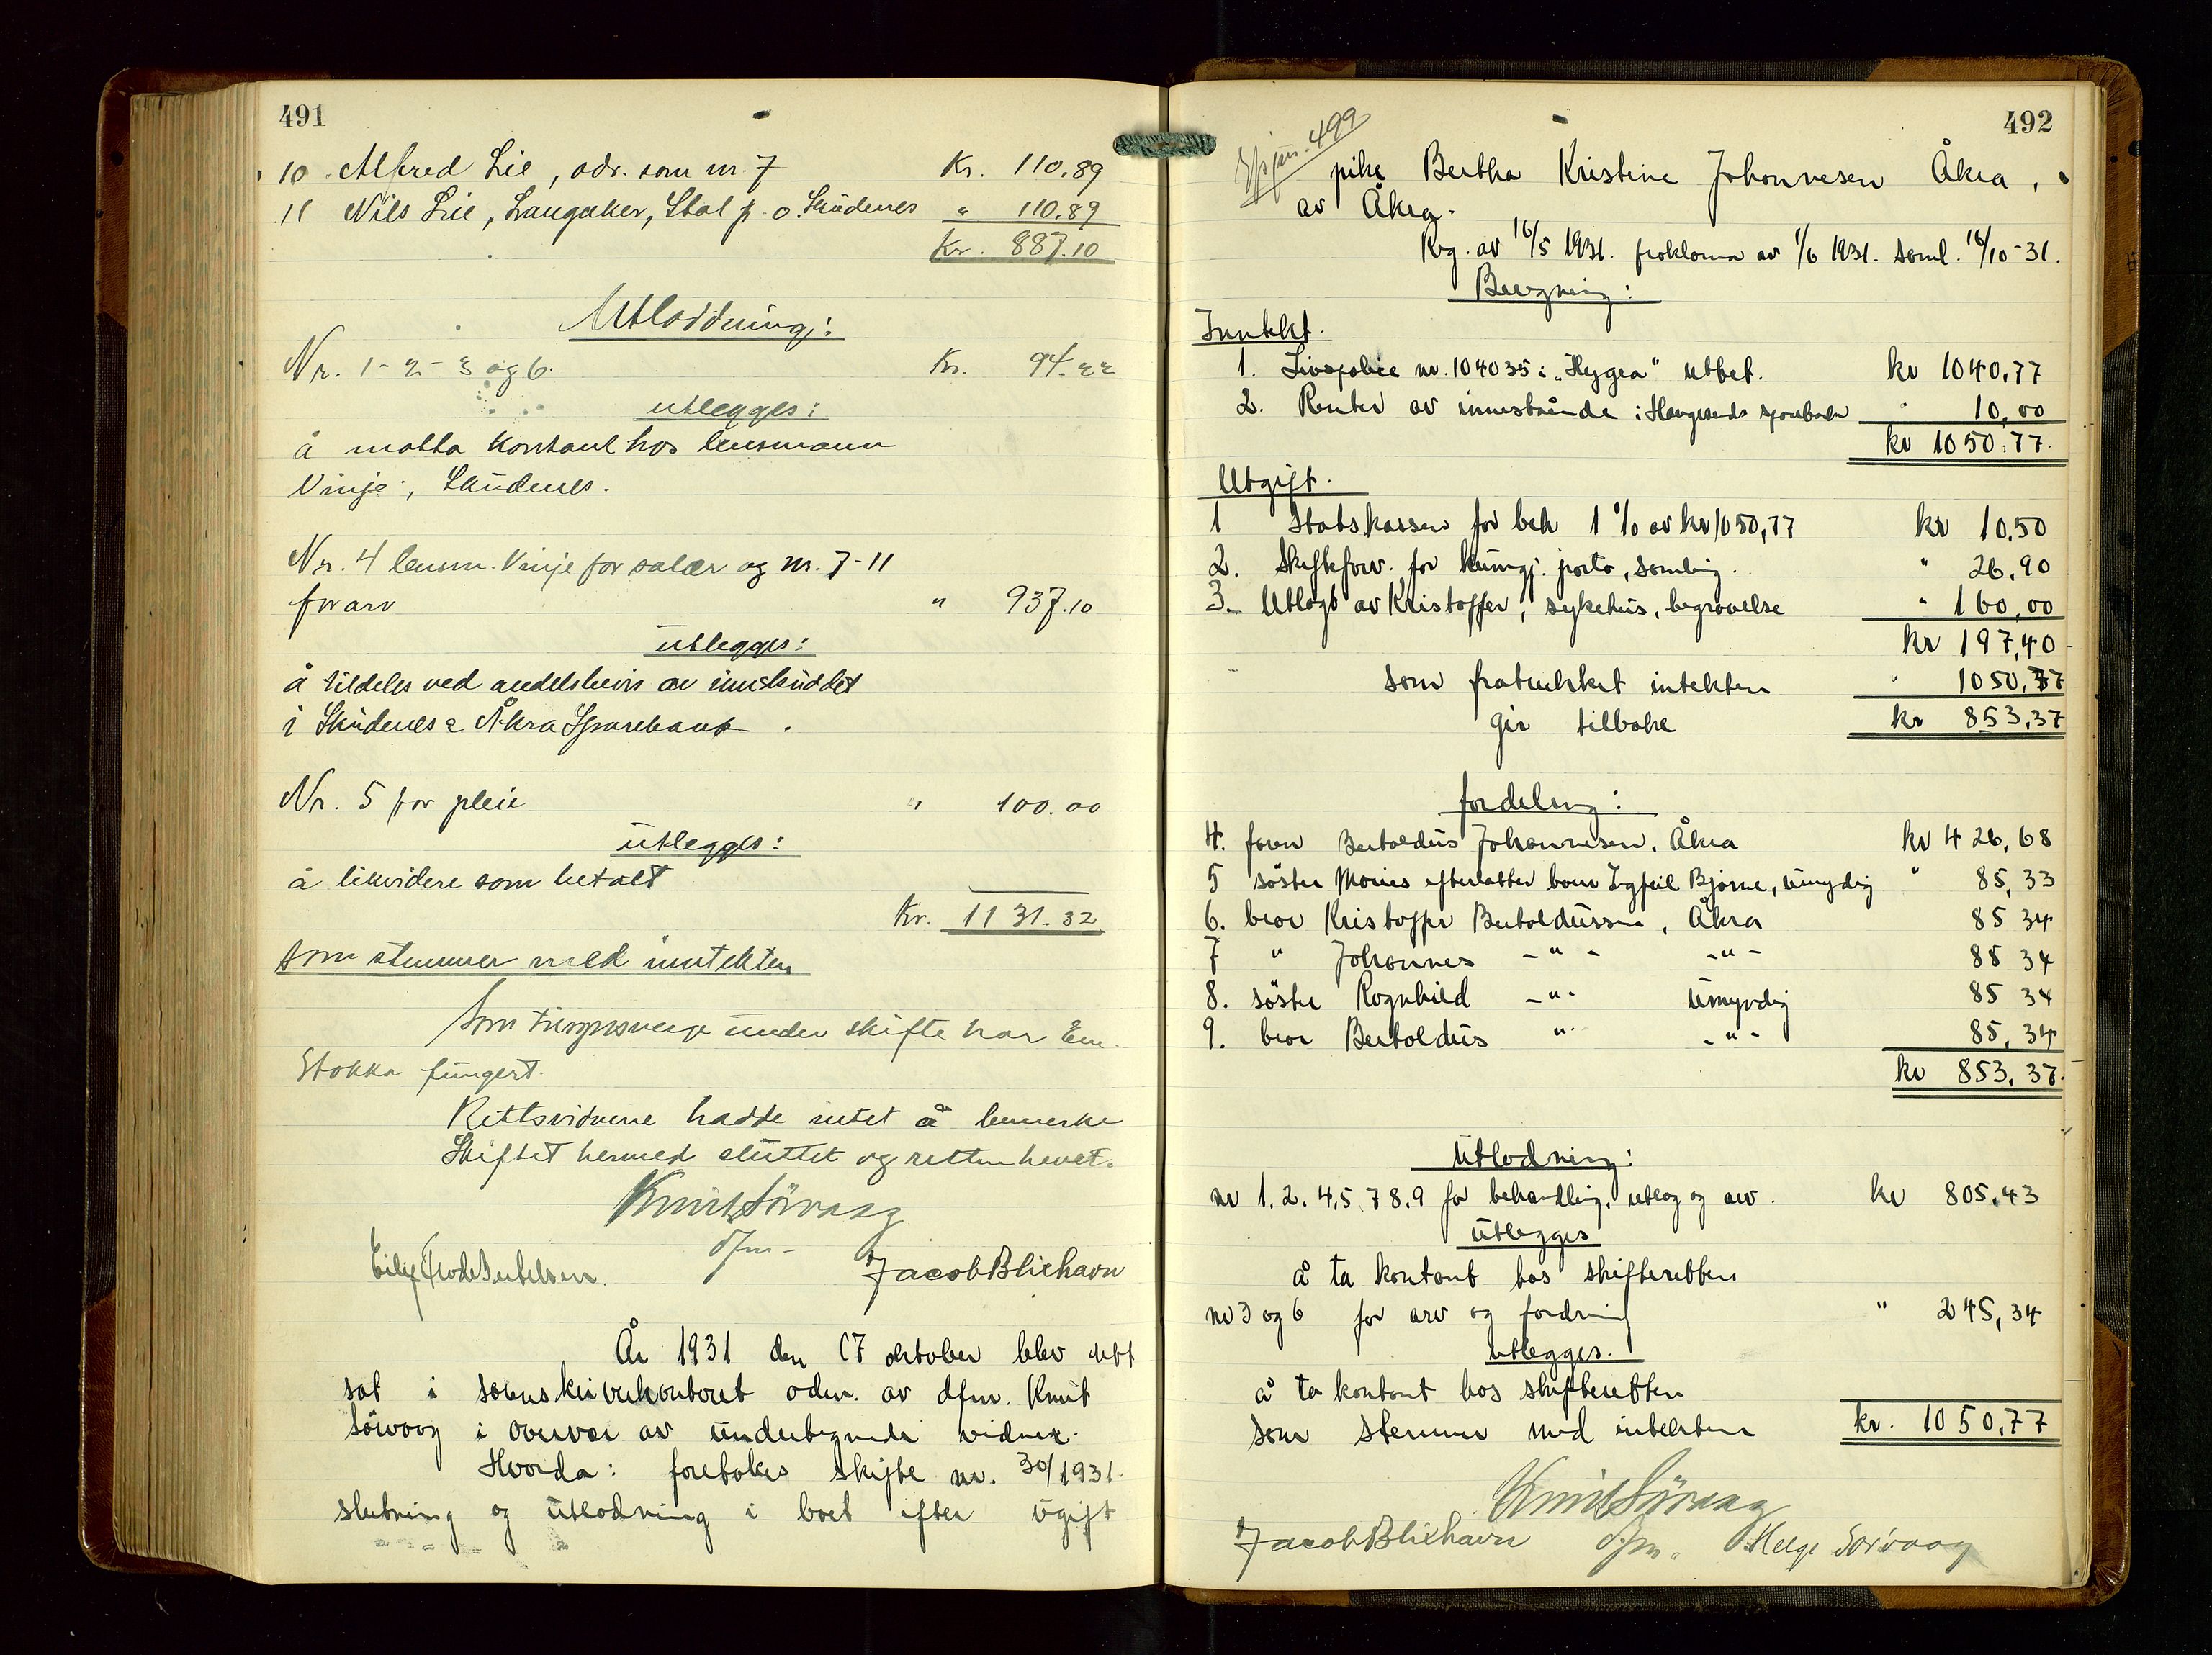 491
10 Alfred Lie, adr. som nr. 7 Kr. 110.89
11 Nils Lie, Langåker, Stol p. o. Skudenes " 110.89
Kr. 887.10
Utloddning:
Nr. 1-2-3 og 6. Kr. 94.22
utlegges:
å motta kontant hos lensmann
Vinje, Skudenes.
Nr. 4 lensm. Vinje for salær og nr. 7-11
for arv " 937.10
utlegges:
å tildeles ved andelsbevis av innskuddet
i Skudenes & Åkra Sparebank.
Nr. 5 for pleie " 100.00
utlegges:
å likvidere som betalt
Kr. 1131.32
som stemmer med inntekten
Som tilsynsverge under skifte har Em.
Stokka fungert.
Rettsvidnene hadde intet å bemerke
Skiftet hermed sluttet og retten hevet.
Knut Sörvaag
dfm-
Jacob Blixhavn
År 1931 den 17 oktober blev rett
sat i sorenskriverkontoret adm. av dfm. Knut
Sörvaag i overvær av undertegnede vidner.
Hvorda: foretokes skifte nr. 30/1931.
slutning og utlodning i boet efter ugift
492
499
pike Bertha Kristine Johannesen Åkra,
av Åkra.
Reg. av 16/5 1931. proklama av 1/6 1931. saml. 16/10-31.
Beregning:
Inntekt.
1. Livspolice nr. 104035 i "Hygea" utbet. kr 1040,77
2. Renter av innestående i Haugesunds sparebank " 10,00
kr 1050,77.
Utgift.
1 Statskassen for beh 1% av kr 1050,77 kr 10,50
2. Skifteforv. for kungj. porto, samling. " 26,90
3. Utlagt av Kristoffer, sykehus, begravelse " 160,00
kr 197,40
som fratrukket intekten " 1050,77
gir tilbake kr 853,37
fordeling:
4. faren Bertoldus Johannesen, Åkra kr 426,68
5 søster Maries efterlatte barn Ingfeil Bjørne, umyndig " 85,33
6. bror Kristoffer Bertoldussen, Åkra 85 34
7 " Johannes -"- -"- 85 34
8. søster Ragnhild -"- umyndig 85 34
9. bror Bertoldus "- -"- 85,34
kr 853,37.
Utlodning:
nr 1.2.4,5 7 8.9 for behandling, utlæg og arv. kr 805,43
utlegges
å ta kontant hos skifteretten
nr 3 og 6 for arv og fordring " 245,34
utlegges.
å ta kontant hos skifteretten
som stemmer med intekten kr. 1050,77
Knut Sörvaag
Jacob Blixhavn dfm. Helge Sørvaag